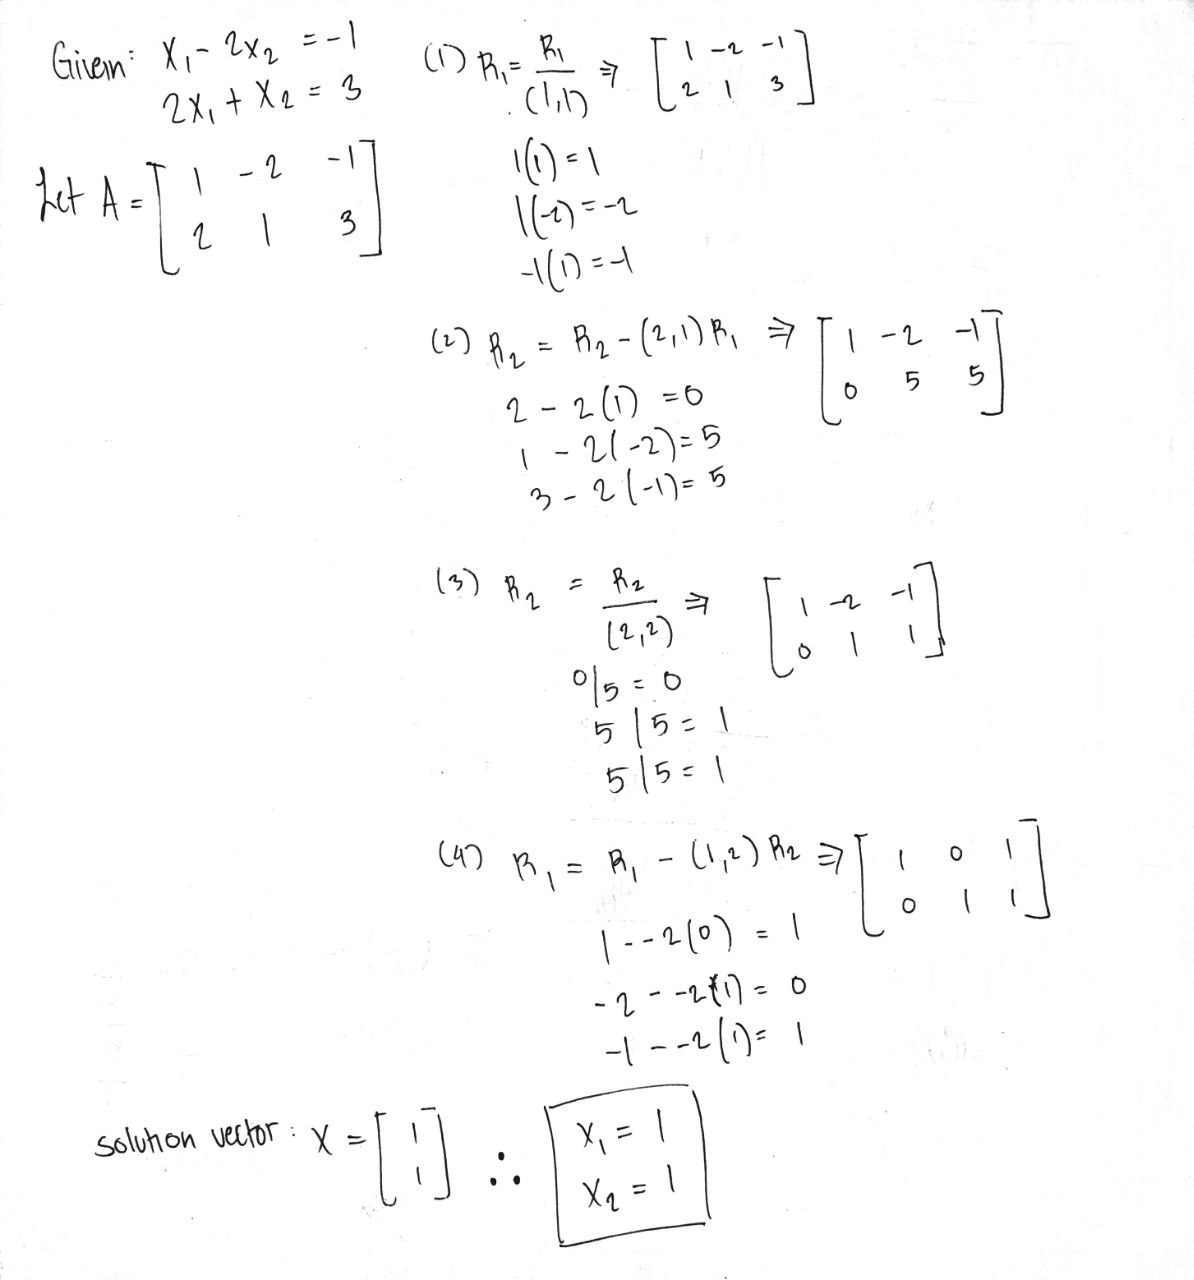 Given: X₁ - 2x₂ = -1
2X₁ + X₂ = 3
Let A = [ 1 -2 -1
2 1 3 ]
(1) R₁ = R₁ / (1,1) ⇒ [ 1 -2 -1
2 1 3 ]
1(1) = 1
1(-2) = -2
-1(1) = -1
(2) R₂ = R₂ - (2,1) R₁ ⇒ [ 1 -2 -1
0 5 5 ]
2 - 2(1) = 0
1 - 2(-2) = 5
3 - 2(-1) = 5
(3) R₂ = R₂ / (2,2) ⇒ [ 1 -2 -1
0 1 1 ]
0/5 = 0
5/5 = 1
5/5 = 1
(4) R₁ = R₁ - (1,2) R₂ ⇒ [ 1 0 1
0 1 1 ]
1 - -2(0) = 1
-2 - -2(1) = 0
-1 - -2(1) = 1
solution vector: X = [ 1
1 ] ∴ X₁ = 1
X₂ = 1